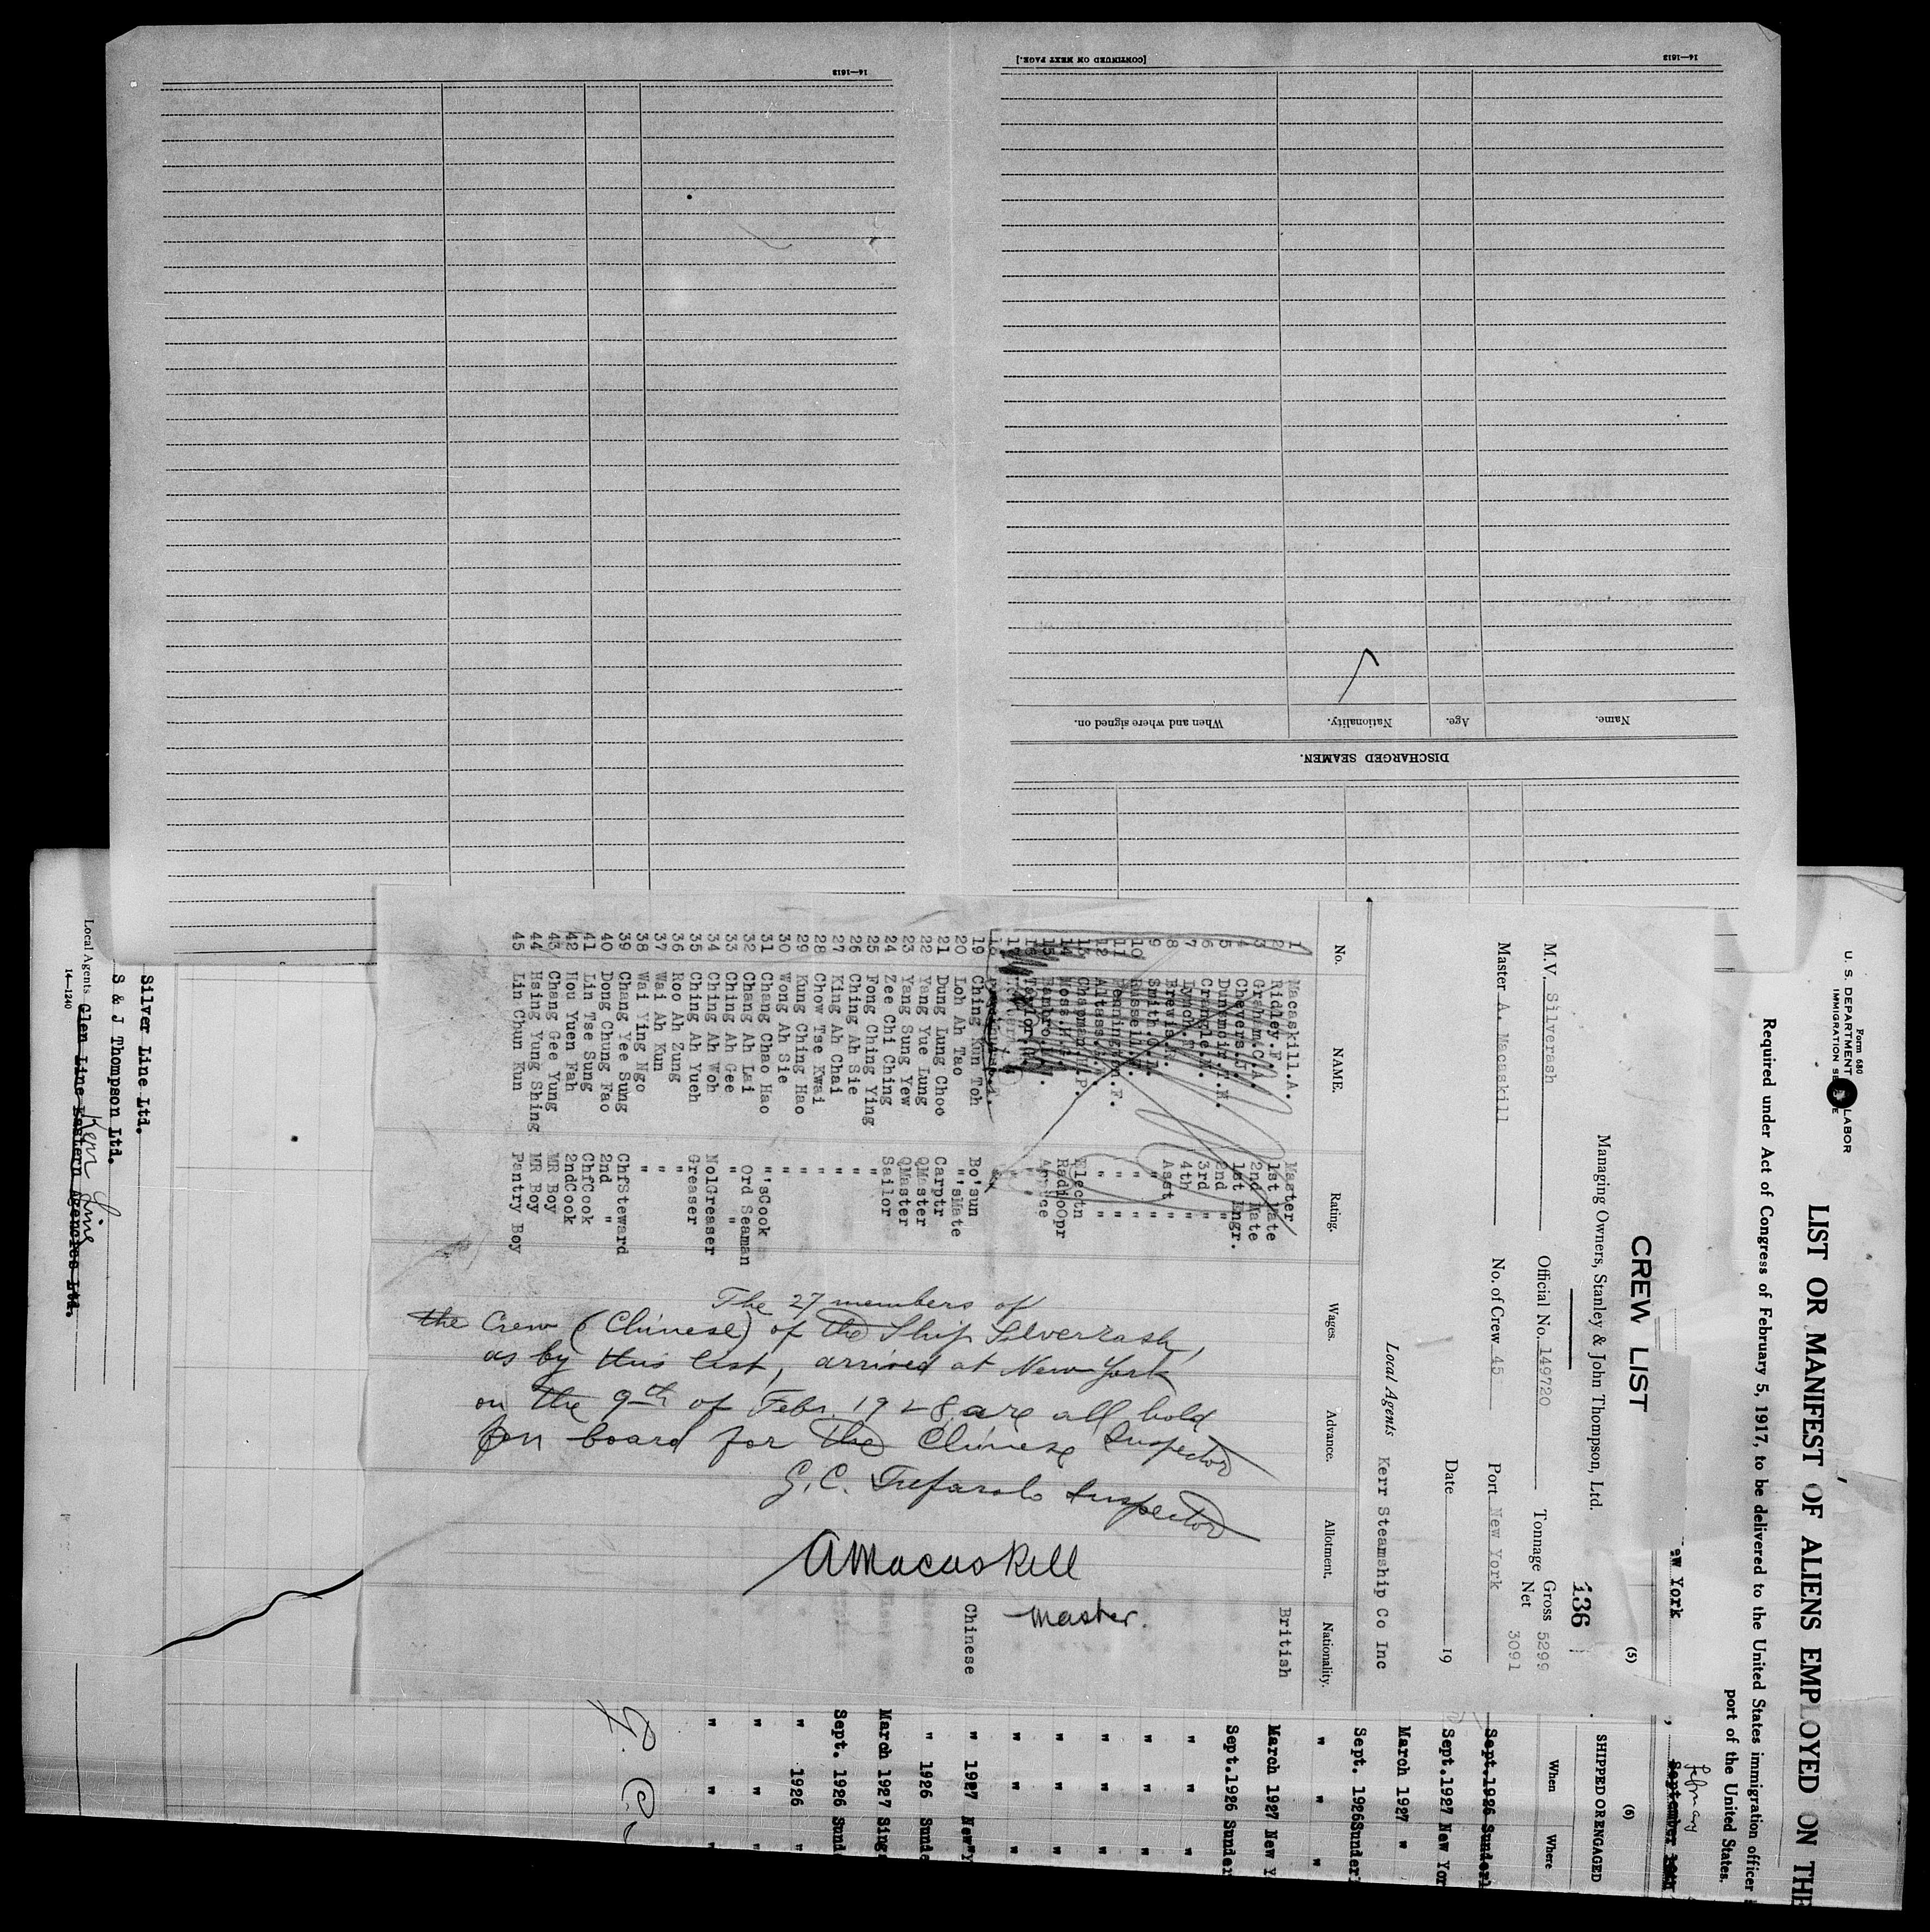 14—1613
[CONTINUED ON NEXT PAGE.]
14—1613
DISCHARGED SEAMEN.
Name. Age. Nationality. When and where signed on.
Form 680
U. S. DEPARTMENT LABOR
IMMIGRATION
LIST OR MANIFEST OF ALIENS EMPLOYED ON THE
Required under Act of Congress of February 5, 1917, to be delivered to the United States immigration officer
port of the United States.
ew York , September 19th
February
(5) (6)
SHIPPED OR ENGAGED
When Where
CREW LIST
136
Managing Owners, Stanley & John Thompson, Ltd.
M.V. Silverash Official No. 149720 Tonnage Gross 5299
Net 3091
Master A. Macaskill No. of Crew 45 Port New York
Date 19
Local Agents Kerr Steamship Co Inc
No. NAME. Rating. Wages. Advance. Allotment. Nationality.
1 Macaskill.A. Master British
2 Ridley.F. 1st Mate
3 Graham.C.A. 2nd Mate
4 Chevers.J. 1st Engr.
5 Dunsmoir.T.H. 2nd "
6 3rd "
7 Lynch.T. 4th "
8 Brewis. Asst "
9 Smith. " "
10 Russell. " "
11 Pennington.F. " "
12 Altass. " "
13 Chapman. P. Electn
14 Moss. RadioOpr
15
16 Taylor
17
18
19 Ching Kun Toh Bo'sun Chinese
20 Loh Ah Tao "'sMate
21 Dung Lung Choo Carptr
22 Yang Yue Lung QMaster
23 Yang Sung Yew QMaster
24 Zee Chi Ching Sailor
25 Fong Ching Ying "
26 Ching Ah Sie "
27 King Ah Chai "
28 Chow Tse Kwai "
29 Kung Ching Hao "
30 Wong Ah Sie "
31 Chang Chao Hao "'sCook
32 Chang Ah Lai Ord Seaman
33 Ching Ah Gee " "
34 Ching Ah Woh No1Greaser
35 Ching Ah Yueh Greaser
36 Roo Ah Zung "
37 Wai Ah Kun "
38 Wai Ying Ngo "
39 Chang Yee Sung ChfSteward
40 Dong Chung Fao 2nd "
41 Lin Tse Sung ChfCook
42 Hou Yuen Fah 2ndCook
43 Chang Gee Yung MR Boy
44 Hsing Yung Shing MR Boy
45 Lin Chun Kun Pantry Boy
The 27 members of
the Crew (Chinese) of the Ship Silverash,
as by this list, arrived at New York
on the 9th of Febr. 1928 are all hold
on board for the Chinese Inspector
G. C. Inspector
A Macaskill
Master.
Sept.1926 Sunderl
Sept.1927 New Yor
March 1927 "
Sept. 1926Sunderl
" " "
March 1927 New Y
Sept.1926 Sunder
" " "
" " "
" " "
" " "
" " "
" 1927 New Y
" 1926 Sunde
March 1927 Sing
Sept. 1926 Sund
" 1926 "
" " "
" " "
Silver Line Ltd.
S & J Thompson Ltd.
Local Agents Glen Line Eastern Agencies Ltd.
Kerr Line
14—1240